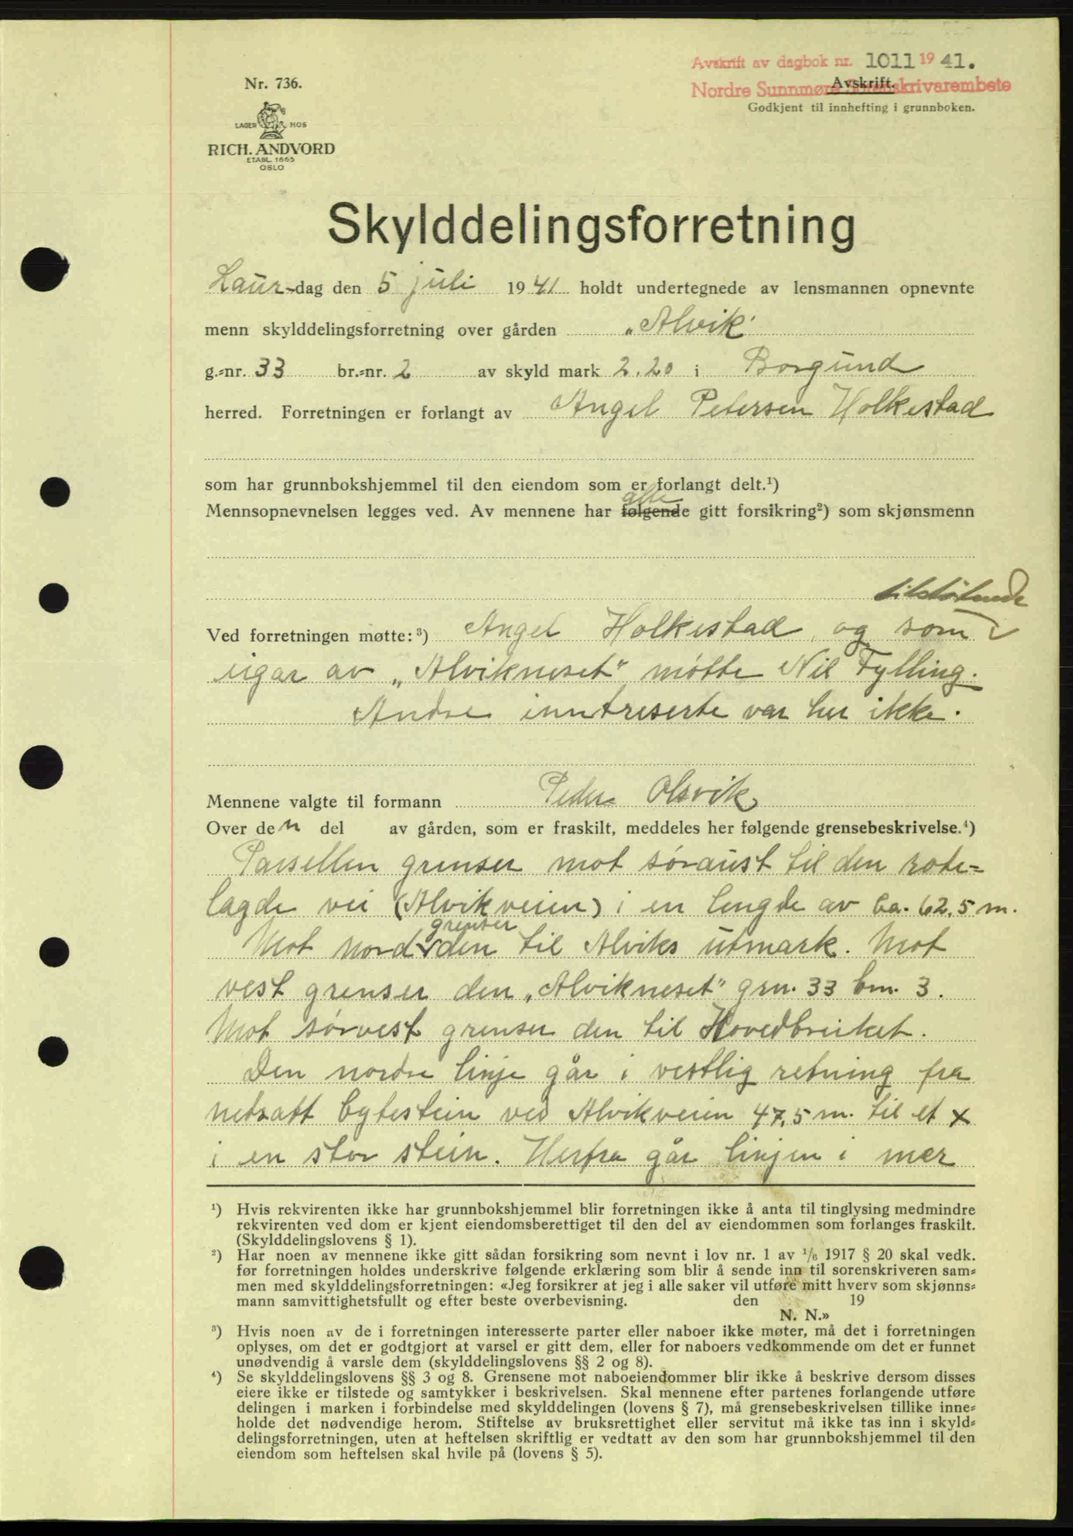 Avskrift av dagbok nr. 1011 19 41.
Nordre Sunnmøre Sorenskrivarembete
Nr. 736.
Avskrift.
Godkjent til innhefting i grunnboken.
LAGER HOS
RICH. ANDVORD
ETABL. 1865
OSLO
Skylddelingsforretning
Laur-dag den 5 juli 1941 holdt undertegnede av lensmannen opnevnte
menn skylddelingsforretning over gården „Alvik"
g.-nr. 33 br.-nr. 2 av skyld mark 2.20 i Borgund
herred. Forretningen er forlangt av Angel Petersen Holkestad
som har grunnbokshjemmel til den eiendom som er forlangt delt.¹)
alle
Mennsopnevnelsen legges ved. Av mennene har følgende gitt forsikring²) som skjønsmenn
tilstøtende
Ved forretningen møtte:³) Angel Holkestad, og som
eigar av „Alvikneset" møtte Nil Fylling.
Andre inntreserte var her ikke.
Mennene valgte til formann Peder Olsvik
Over den del av gården, som er fraskilt, meddeles her følgende grensebeskrivelse.⁴)
Parsellen grenser mot søraust til den rode=
lagde vei (Alvikveien) i en lengde av ca. 62,5 m.
grenser
Mot nord den til Alviks utmark. Mot
vest grenser den „Alvikneset" grn. 33 brn. 3.
Mot sørvest grenser den til Hovedbruket.
Den nordre linje går i vestlig retning fra
netsatt bytestein ved Alvikveien 47,5 m. til et x
i en stor stein. Herfra går linjen i mer
¹) Hvis rekvirenten ikke har grunnbokshjemmel blir forretningen ikke å anta til tinglysing medmindre
rekvirenten ved dom er kjent eiendomsberettiget til den del av eiendommen som forlanges fraskilt.
(Skylddelingslovens § 1).
²) Har noen av mennene ikke gitt sådan forsikring som nevnt i lov nr. 1 av ¹/₆ 1917 § 20 skal vedk.
før forretningen holdes underskrive følgende erklæring som blir å sende inn til sorenskriveren sam-
men med skylddelingsforretningen: «Jeg forsikrer at jeg i alle saker vil utføre mitt hverv som skjønns-
mann samvittighetsfullt og efter beste overbevisning. den 19
N. N.»
³) Hvis noen av de i forretningen interesserte parter eller naboer ikke møter, må det i forretningen
oplyses, om det er godtgjort at varsel er gitt dem, eller for naboers vedkommende om det er funnet
unødvendig å varsle dem (skylddelingslovens §§ 2 og 8).
⁴) Se skylddelingslovens §§ 3 og 8. Grensene mot naboeiendommer blir ikke å beskrive dersom disses
eiere ikke er tilstede og samtykker i beskrivelsen. Skal mennene efter partenes forlangende utføre
delingen i marken i forbindelse med skylddelingen (lovens § 7), må grensebeskrivelsen tillike inne-
holde det nødvendige herom. Stiftelse av bruksrettighet eller servitut må ikke tas inn i skyld-
delingsforretningen, uten at heftelsen skriftlig er vedtatt av den som har grunnbokshjemmel til den
eiendom som heftelsen skal hvile på (lovens § 5).